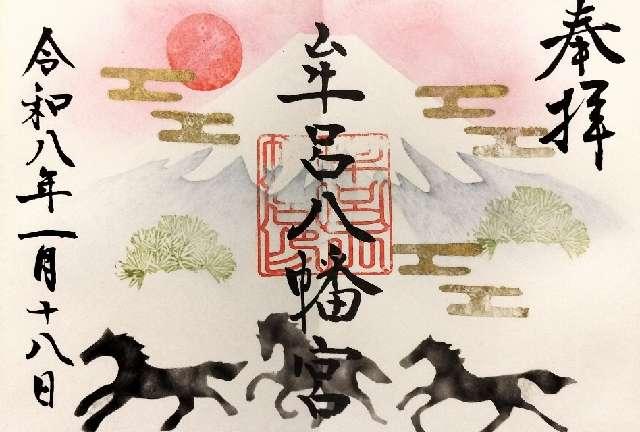 奉拝
牟呂八幡宮
令和八年一月十八日